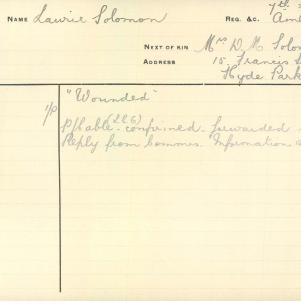 7th
NAME Laurie Solomon REG. &C. Amb
NEXT OF KIN Mrs D. M. Solo
ADDRESS 15 Francis S
Hyde Park
"Wounded"
(226)
confirmed. forwarded
Reply from Commrs. Information